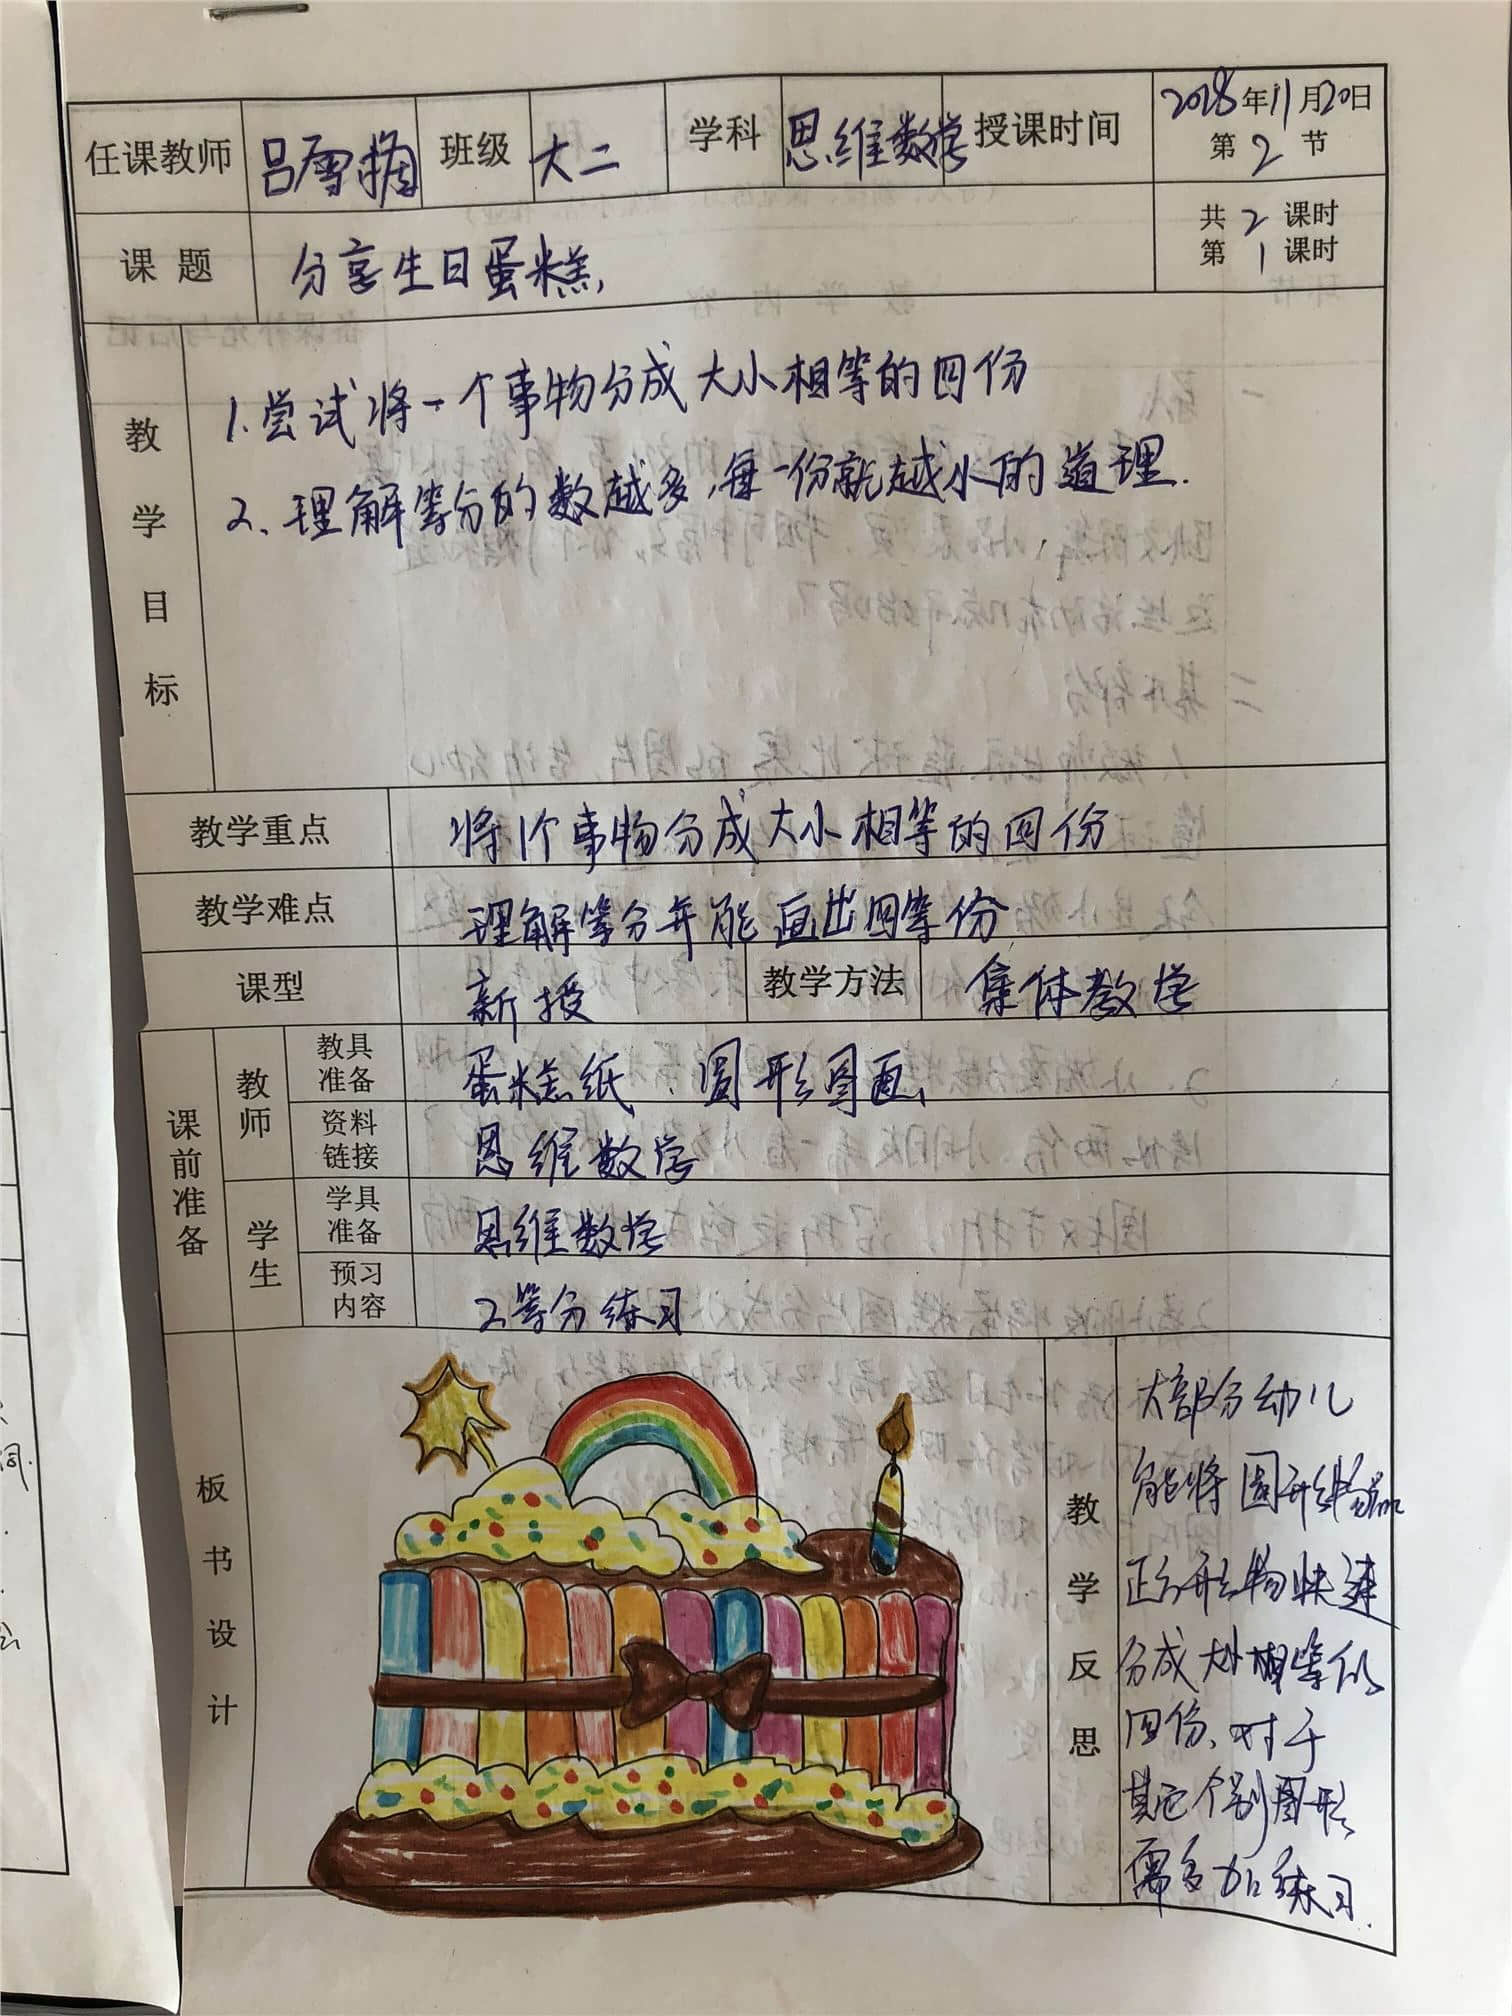 任课教师 吕雪 班级 大二 学科 思维数学 授课时间 2018年11月20日
第2节
课题 分享生日蛋糕
共2课时
第1课时
教学目标
1.尝试将一个事物分成大小相等的四份
2.理解等分的数越多,每一份就越小的道理.
教学重点 将1个事物分成大小相等的四份
教学难点 理解等分并能画出四等份
课型 新授 教学方法 集体教学
课前准备
教师
教具准备 蛋糕纸、圆形图画
资料链接 思维数学
学生
学具准备 思维数学
预习内容 2等分练习
板书设计
教学反思
大部分幼儿
能将圆形物品
正方形物快速
分成大小相等的
四份、对于
其它个别图形
需多加练习.